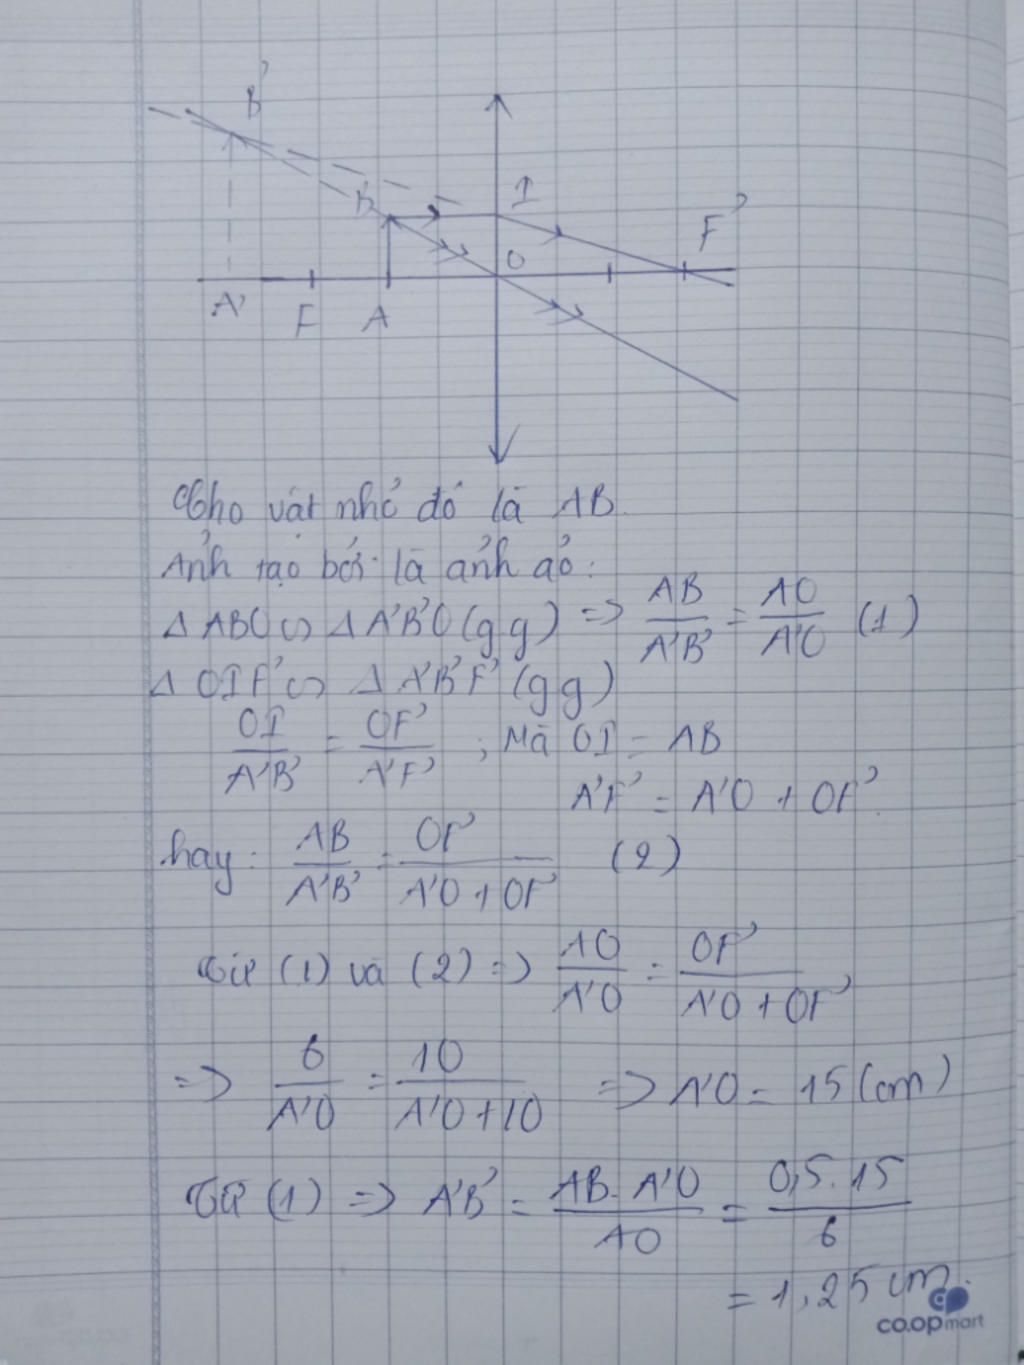 B'
B
I
F'
O
A'
F
A
Cho vật nhỏ đó là AB.
Ảnh tạo bởi là ảnh ảo:
Δ ABO ∽ Δ A'B'O (gg) => AB/A'B' = AO/A'O (1)
Δ OIF' ∽ Δ A'B'F' (gg)
OI/A'B' = OF'/A'F' ; Mà OI = AB
A'F' = A'O + OF'
hay: AB/A'B' = OF'/A'O + OF' (2)
Từ (1) và (2) => AO/A'O = OF'/A'O + OF'
=> 6/A'O = 10/A'O + 10 => A'O = 15 (cm)
Từ (1) => A'B' = AB. A'O/AO = 0,5.15/6
= 1,25 cm.
co.opmart